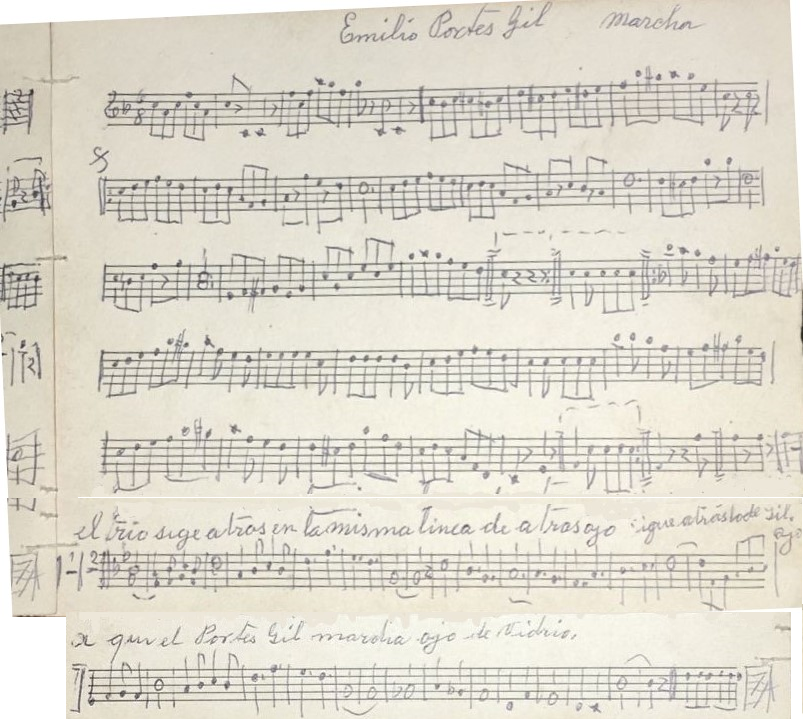 Emilio Portes Gil marcha
el trio sige atras en la misma linea de atras ojo sigue atrás lo de Gil.
ojo
a qui el Portes Gil marcha ojo de Vidrio.